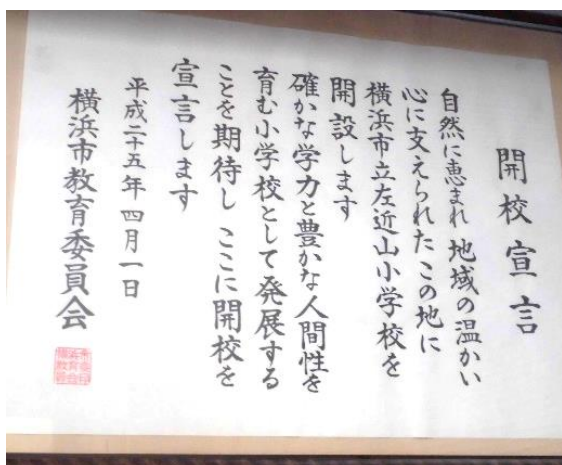 開校宣言
自然に恵まれ 地域の温かい
心に支えられた この地に
横浜市立左近山小学校を
開設します
確かな学力と豊かな人間性を
育む小学校として発展する
ことを期待し ここに開校を
宣言します
平成二十五年四月一日
横浜市教育委員会